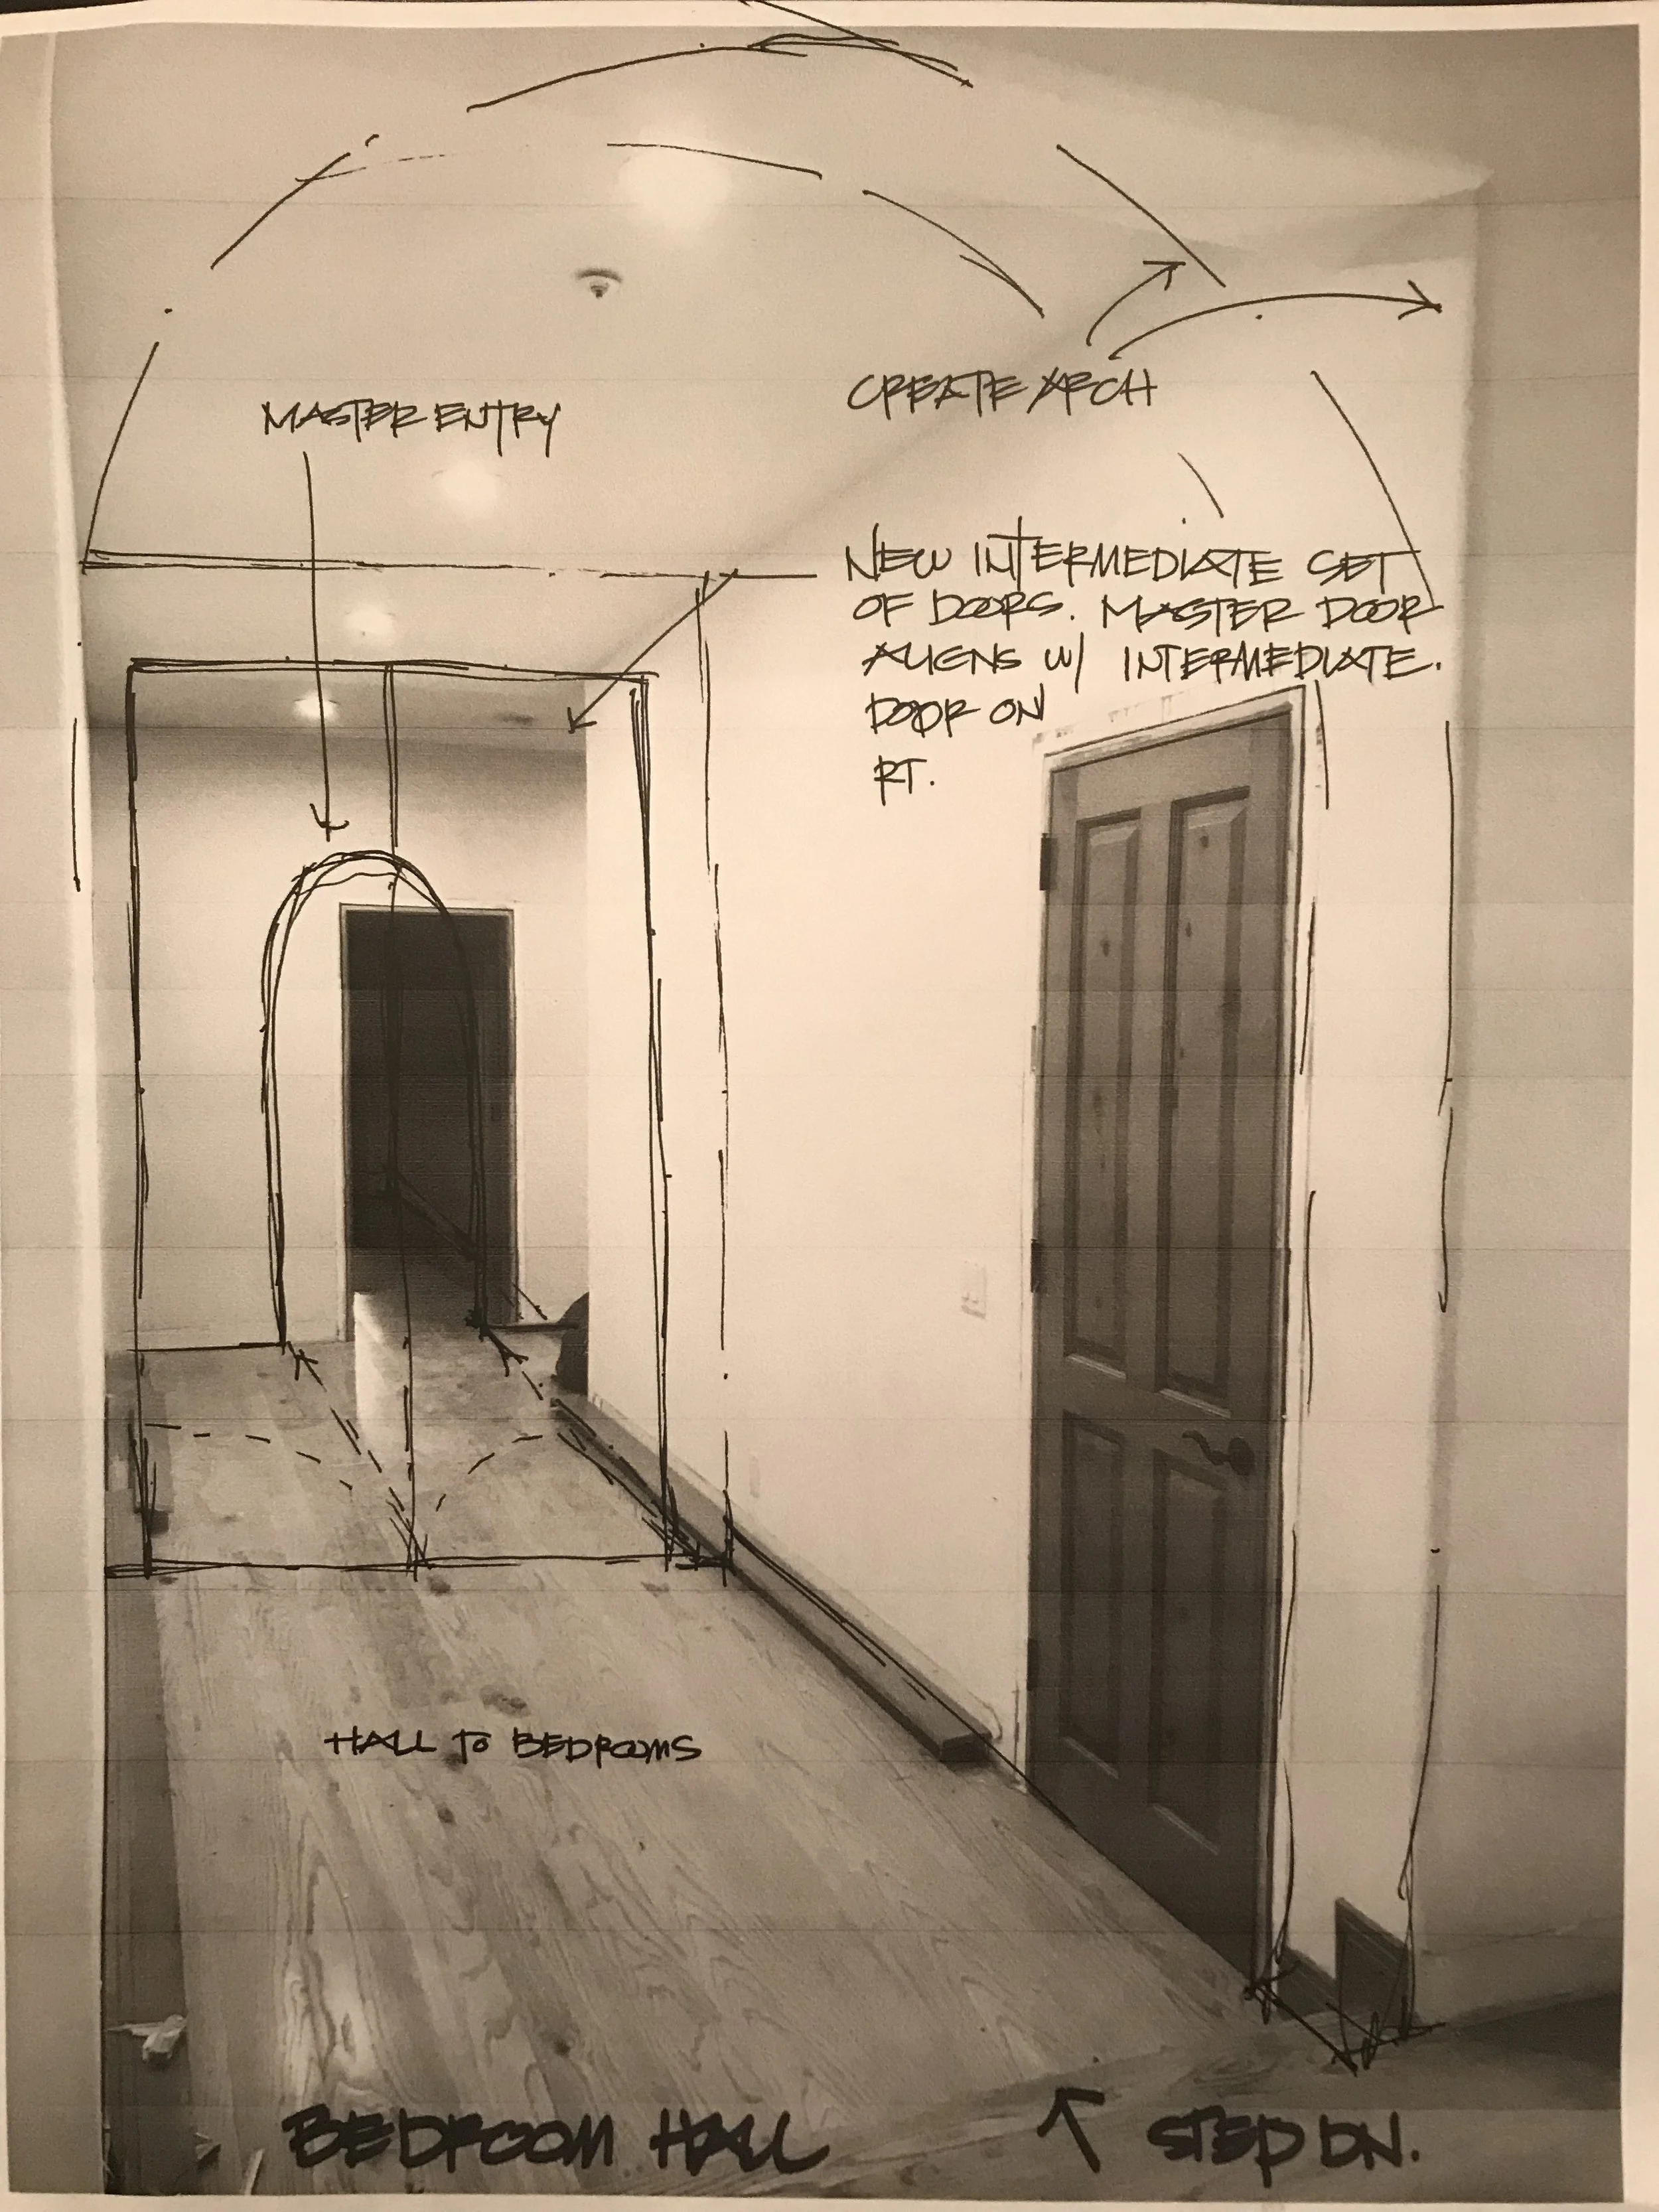 MASTER ENTRY
CREATE ARCH
NEW INTERMEDIATE SET
OF DOORS. MASTER DOOR
ALIGNS W/ INTERMEDIATE.
DOOR ON
RT.
HALL TO BEDROOMS
BEDROOM HALL
STEP DN.